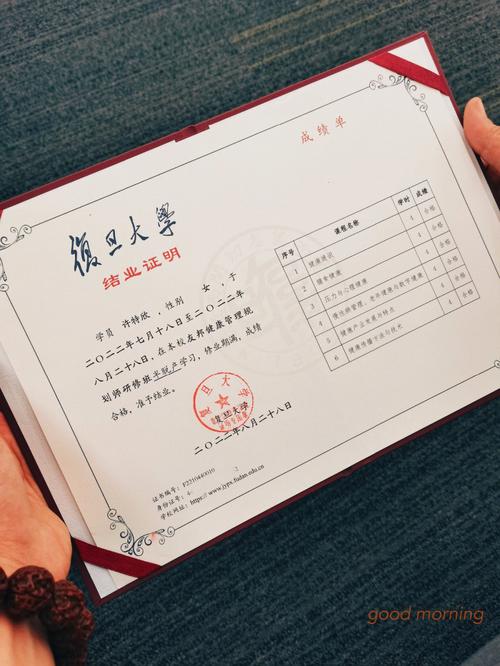 復旦大學
结业证明
学员 许特欣 ，性别 女 ，于
二〇二二年七月十八日至二〇二二年
八月二十八日，在本校友邦健康管理规
划师研修班半脱产学习，修业期满，成绩
合格，准予结业。
复旦大学
二〇二二年八月二十八日
证书编号：F2210440010
身份证号：4
学校网址：https://www.jypx.fudan.edu.cn
成绩单
序号 课程名称 学时 成绩
1 健康通识 4 合格
2 膳食健康 4 合格
3 压力与心理健康 4 合格
4 慢性病管理、老外健康与数字健康 4 合格
5 健康产业发展与特点 4 合格
6 健康传播方法与技术 4 合格
good morning